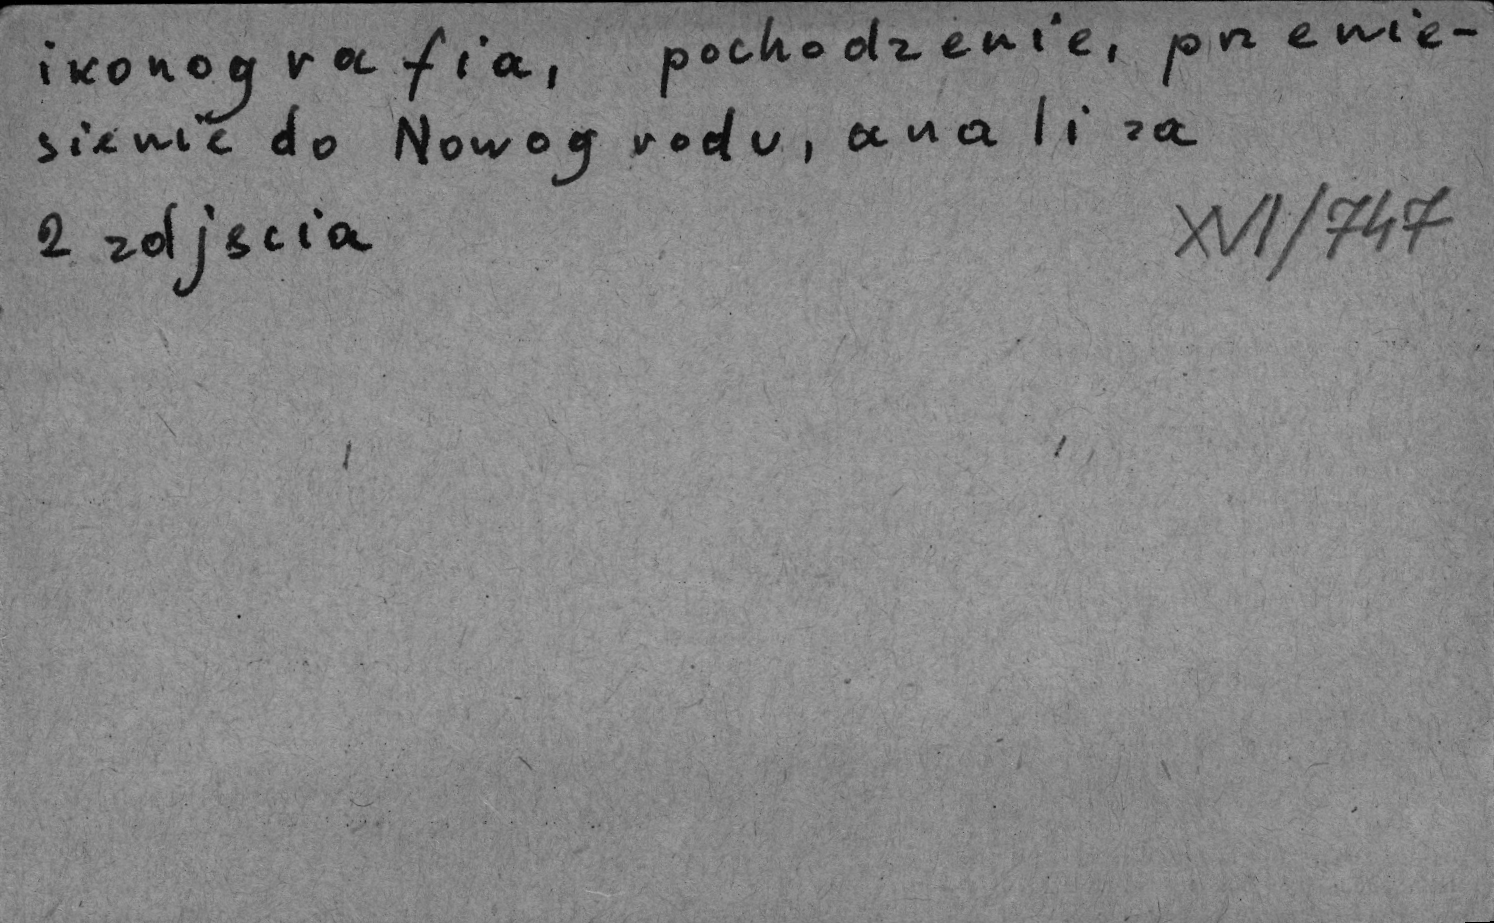 ikonografia, pochodzenie, przenie-
sienie do Nowogrodu, analiza
2 zdjscia
XVI/747